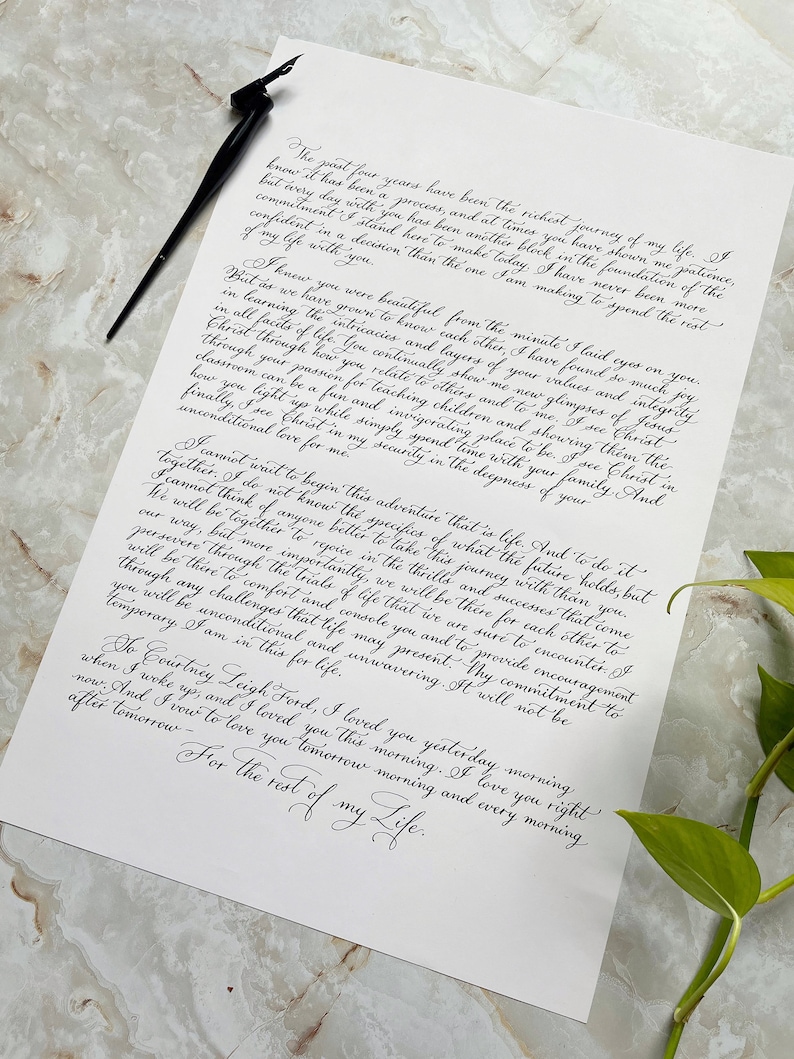 The past four years have been the richest journey of my life. I
know it has been a process, and at times you have shown me patience,
but every day with you has been another block in the foundation of the
commitment I stand here to make today. I have never been more
confident in a decision than the one I am making to spend the rest
of my life with you.
I knew you were beautiful from the minute I laid eyes on you.
But as we have grown to know each other, I have found so much joy
in learning the intricacies and layers of your values and integrity
in all facets of life. You continually show me new glimpses of Jesus
Christ through how you relate to others and to me. I see Christ
through your passion for teaching children and showing them the
classroom can be a fun and invigorating place to be. I see Christ in
how you light up while simply spend time with your family. And
finally, I see Christ in my security in the deepness of your
unconditional love for me.
I cannot wait to begin this adventure that is life. And to do it
together. I do not know the specifics of what the future holds, but
I cannot think of anyone better to take this journey with than you.
We will be together to rejoice in the thrills and successes that come
our way, but more importantly, we will be there for each other to
persevere through the trials of life that we are sure to encounter. I
will be there to comfort and console you and to provide encouragement
through any challenges that life may present. My commitment to
you will be unconditional and unwavering. It will not be
temporary. I am in this for life.
To Courtney Leigh Ford, I loved you yesterday morning
when I woke up, and I loved you this morning. I love you right
now. And I vow to love you tomorrow morning and every morning
after tomorrow –
For the rest of my Life.